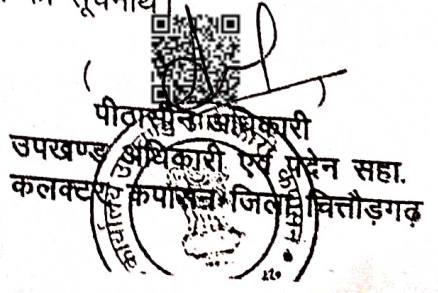 सूचनार्थ।
( )
पीठासीन अधिकारी
उपखण्ड अधिकारी एवं पदेन सहा.
कलक्टर कपासन जिला चित्तौड़गढ़
कार्यालय